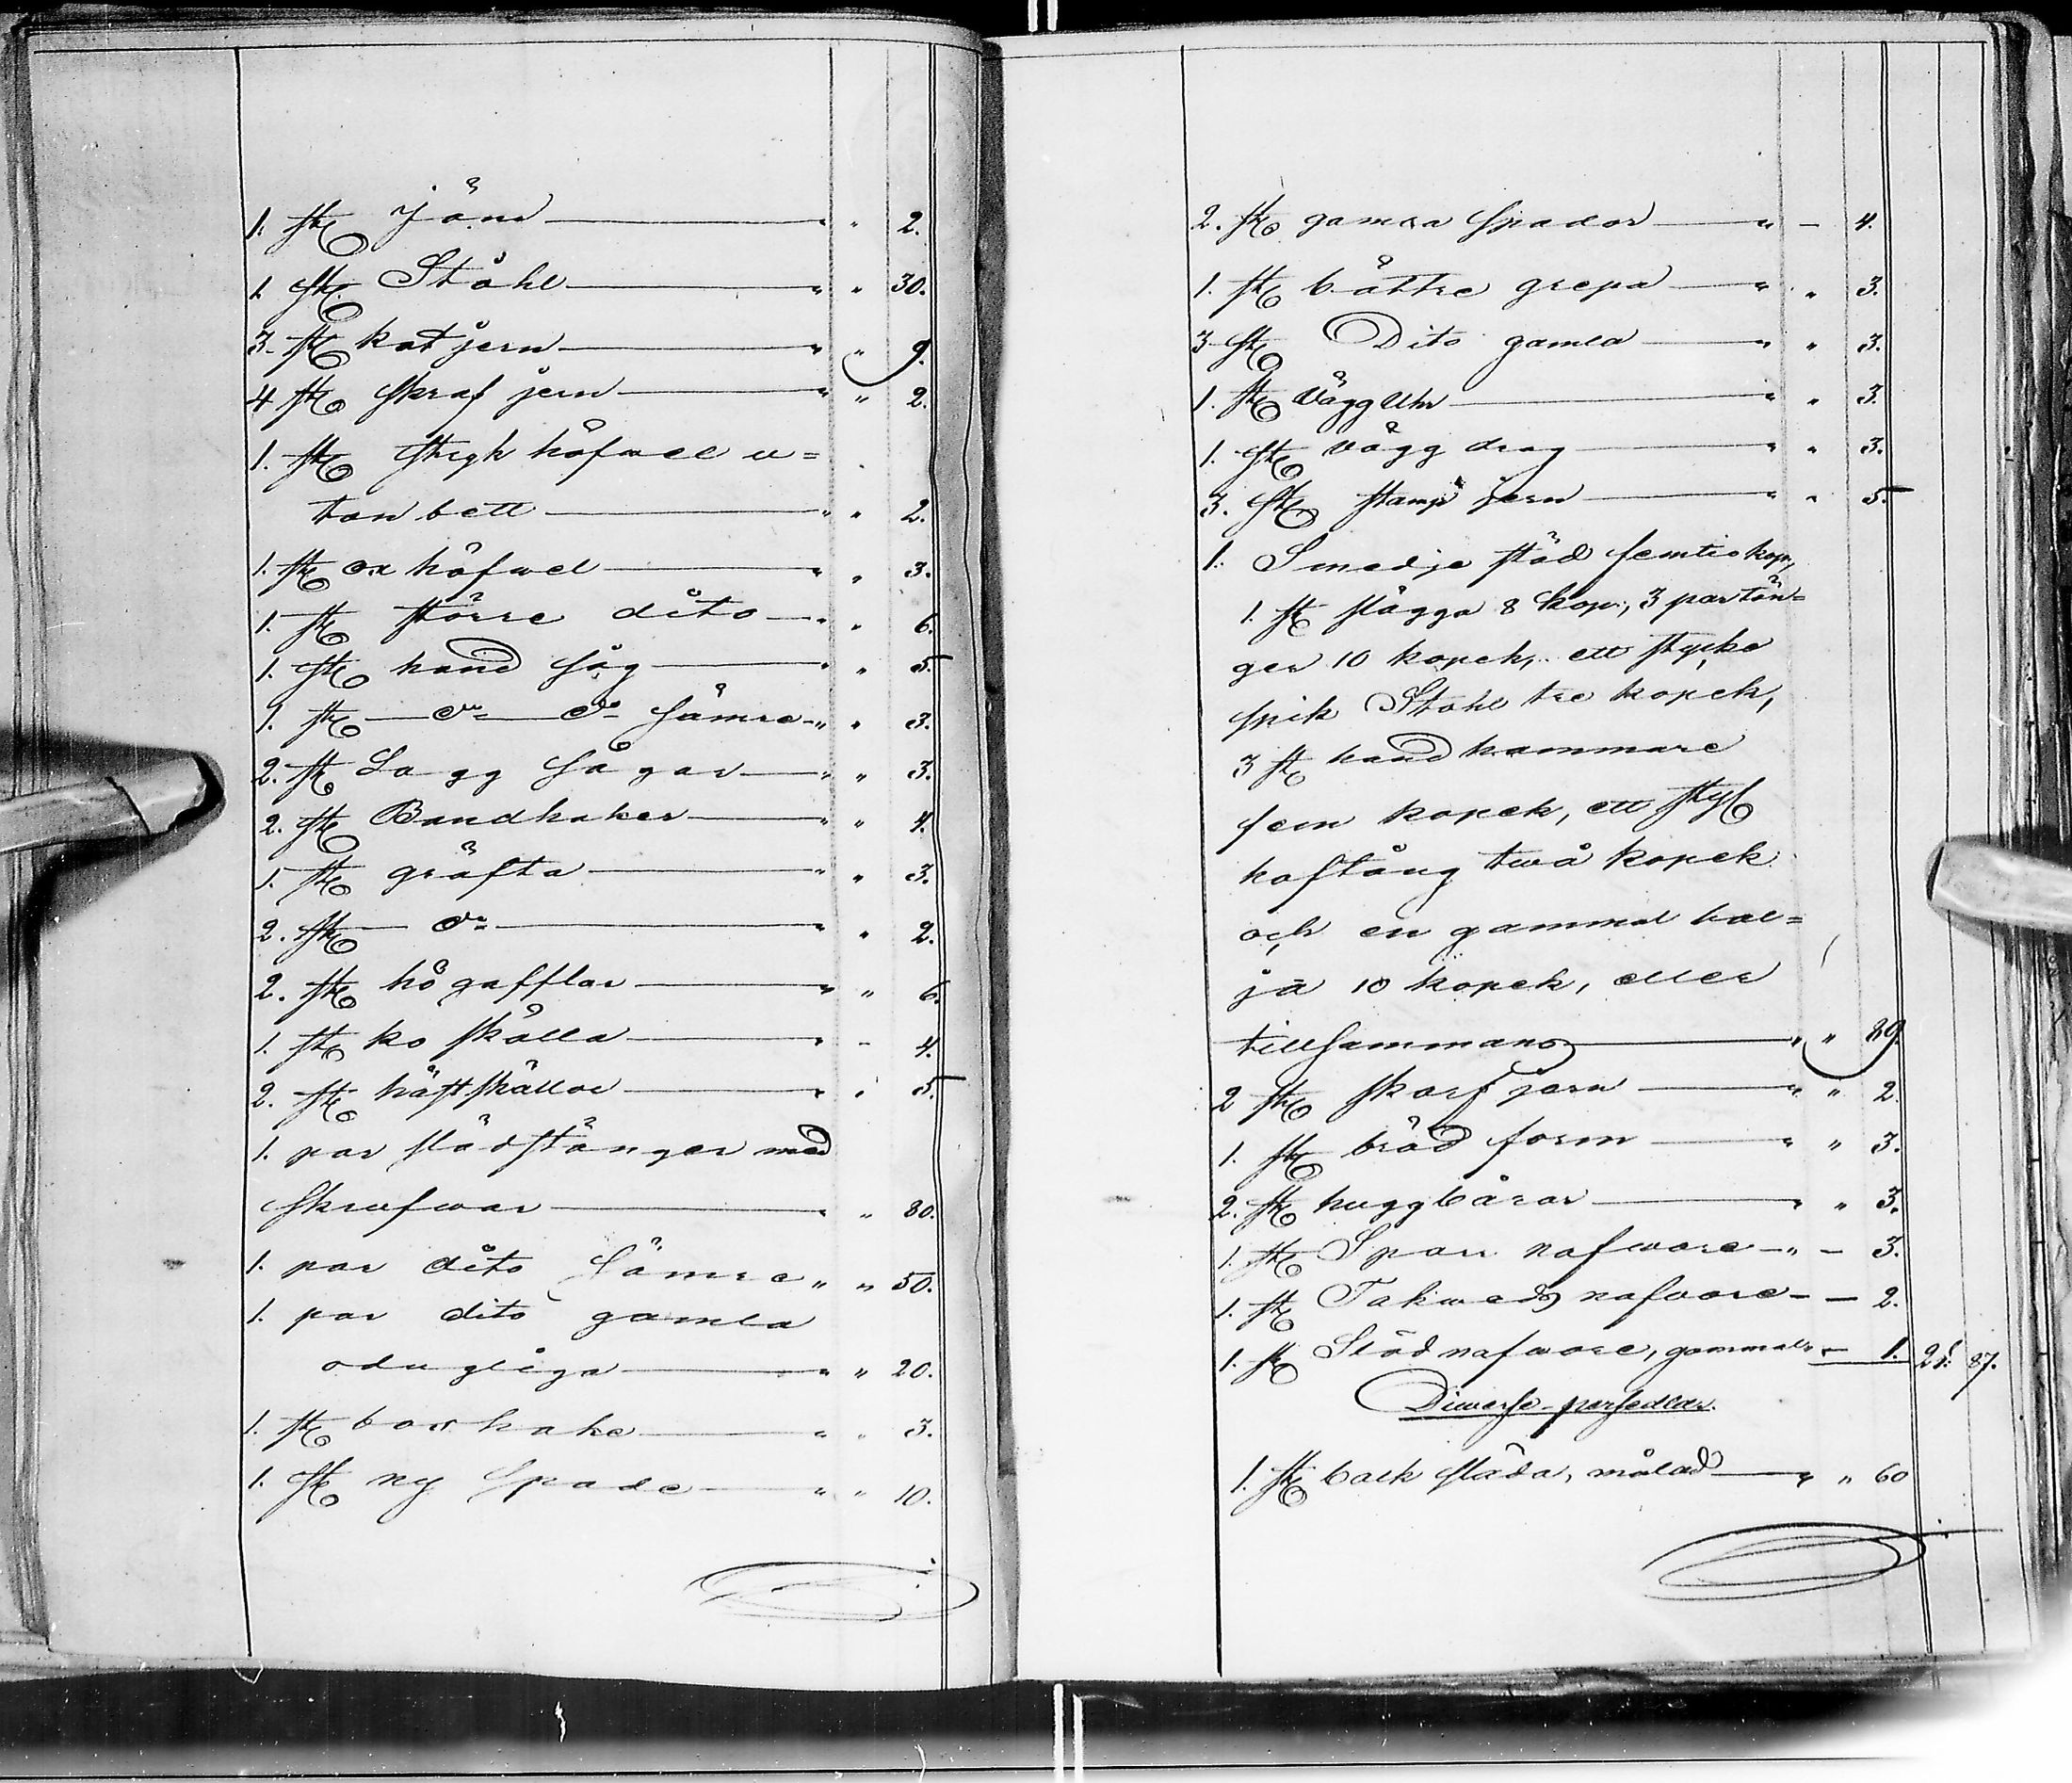 1. stk jäm — " " 2.
1 stk Ståhl — " " 30.
3 stk kat jern — " " 9.
4 stk skraf jern — " " 2.
1. stk stryk höfwel u=
tan bett — " " 2.
1. stk ox höfwel — " " 3.
1. stk större dito — " " 6.
1. stk hand såg — " " 5.
1. stk — do — do sämre — " " 3.
2. stk Lagg sågar — " " 3.
2. stk Bandhaker — " " 4.
1. stk gräfta — " " 3.
2. stk — do — " " 2.
2. stk högafflar — " " 6.
1. stk ko skälla — " - 4.
2. stk häst skällor — " " 5.
1. par slädstänger med
skrufwar — " " 80.
1. par dito sämre " " 50.
1. par dito gamla
odugliga — " " 20.
1. stk bort hake — " " 3.
1. stk ny spade — " " 10.
2. stk gamla spador — " - 4.
1. stk bättre grepa — " " 3.
3 stk Dito gamla — " " 3.
1. stk väggUhr — " " 3.
1. stk vågg drag — " " 3.
3. stk stamp jern — " " 5.
1. Smedje städ femtio kop,
1. st slägga 8 kop:, 3 par tän=
ger 10 kopek, ett stycke
spik Stohl tre kopek,
3 st hand hammare
fem kopek, ett styk
hoftång två kopek
och en gammal bal=
ja 10 kopek, eller
tillsammans — " " 89.
2 stk skarf jern — " " 2.
1. stk bröd form — " " 3.
2. stk huggbårar — " " 3.
1. stk Sparr nafware — " - 3.
1. stk Takweds nafware - - 2.
1. st Slädnafware, gammal " - 1. 21. 87.
Diwerse persedlar.
1. stk balk släda, målad — " " 60